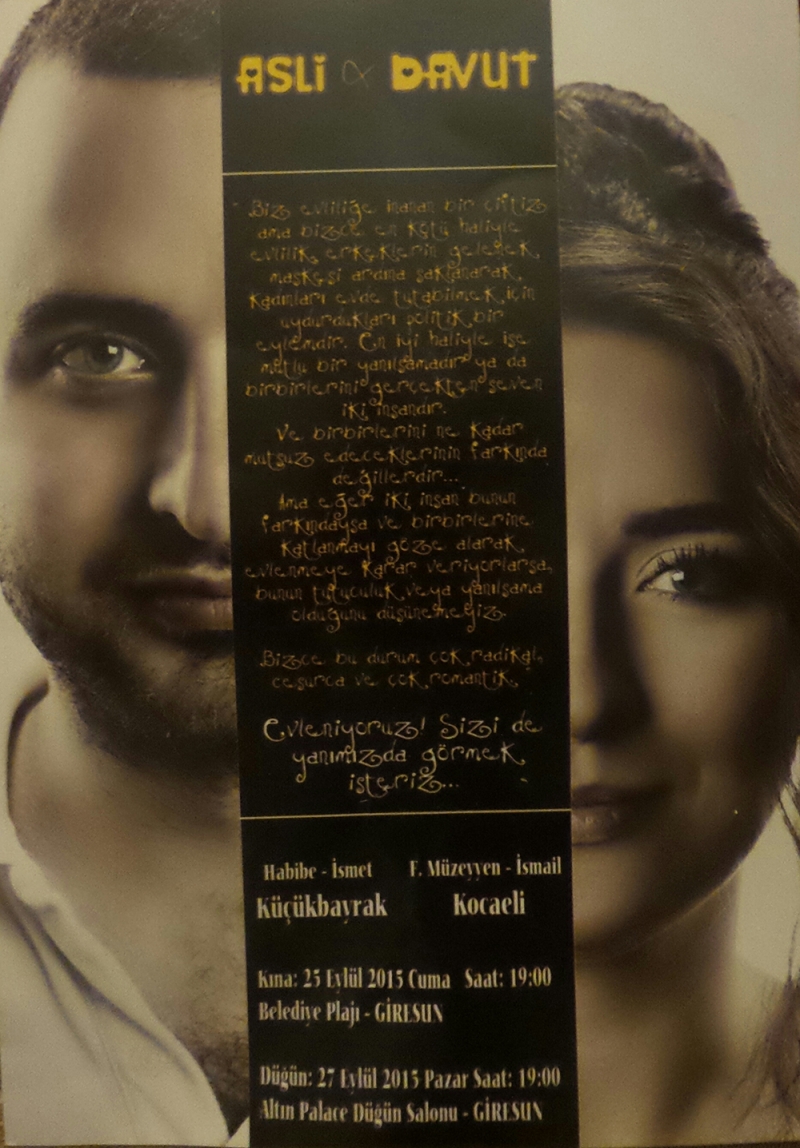 ASLI & DAVUT
Biz evliliğe inanan bir çiftiz
ama bizce en kötü haliyle
evlilik erkeklerin gelenek
maskesi ardına saklanarak,
kadınları evde tutabilmek için
uydurdukları politik bir
eylemdir. En iyi haliyle ise
mutlu bir yanılsamadır ya da
birbirlerini gerçekten seven
iki insandır.
Ve birbirlerini ne kadar
mutsuz edeceklerinin farkında
değillerdir...
Ama eğer iki insan bunun
farkındaysa ve birbirlerine
katlanmayı göze alarak
evlenmeye karar veriyorlarsa,
bunun tutuculuk veya yanılsama
olduğunu düşünemeyiz.
Bizce bu durum çok radikal,
cesurca ve çok romantik.
Evleniyoruz! Sizi de
yanımızda görmek
isteriz...
Habibe - İsmet F. Müzeyyen - İsmail
Küçükbayrak Kocaeli
Kına: 25 Eylül 2015 Cuma Saat: 19:00
Belediye Plajı - GİRESUN
Düğün: 27 Eylül 2015 Pazar Saat: 19:00
Altın Palace Düğün Salonu - GİRESUN